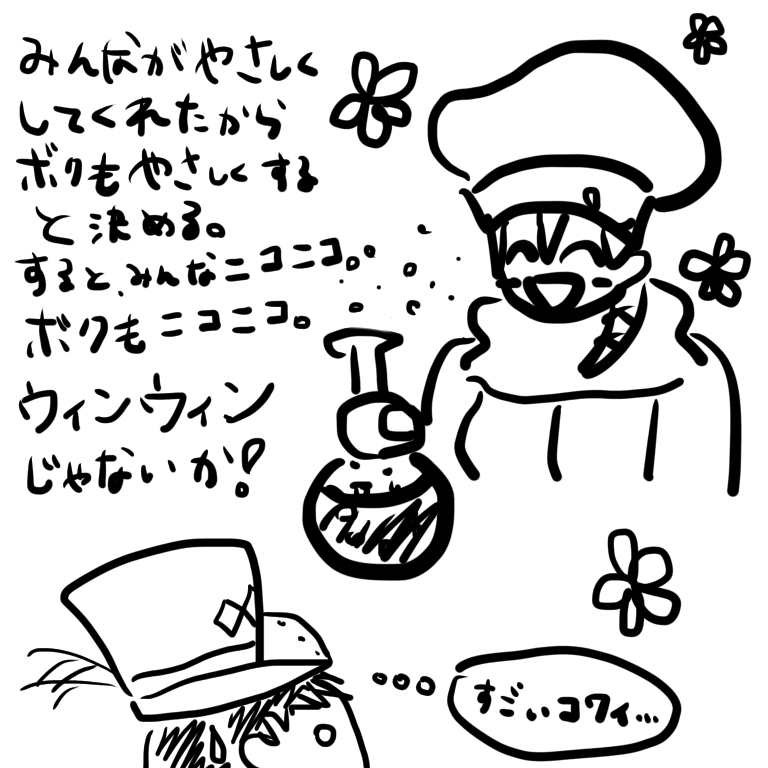 みんながやさしく
してくれたから
ボクもやさしくする
と決める。
すると、みんなニコニコ。
ボクもニコニコ。
ウィンウィン
じゃないか!
すごいコワイ…